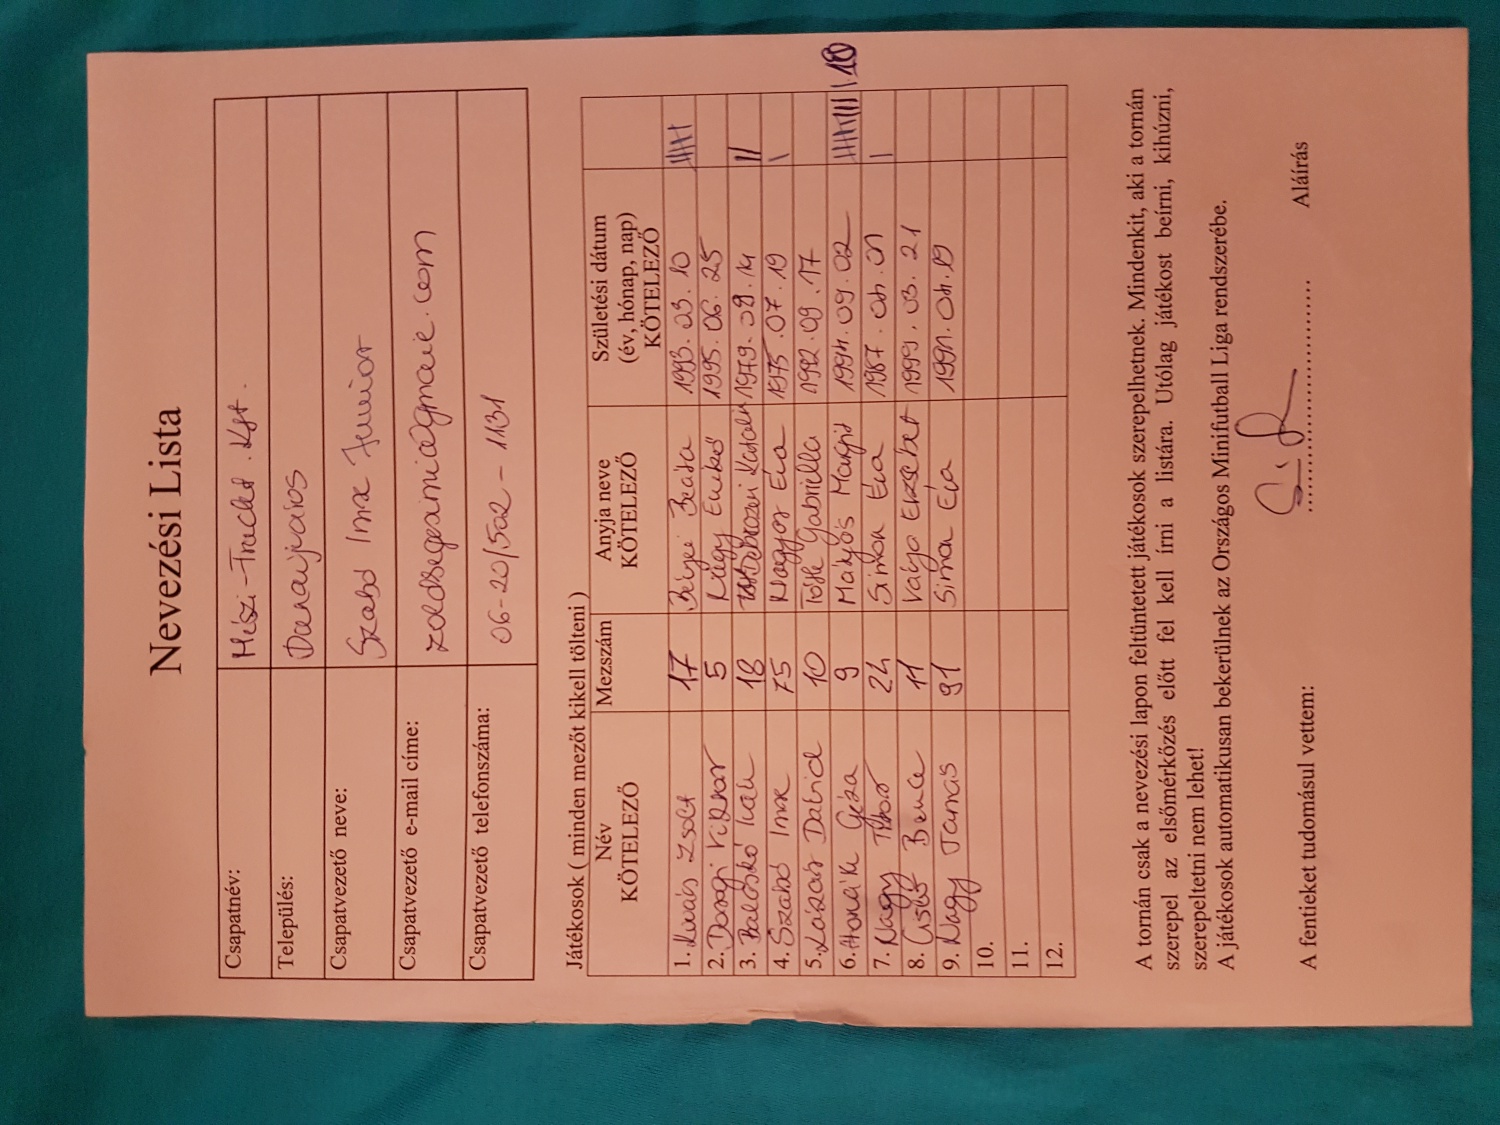 Nevezési Lista
Csapatnév: Mészi-Tracht. Kft.
Település: Dunaújváros
Csapatvezető neve: Szabó Imre Junior
Csapatvezető e-mail címe:
Csapatvezető telefonszáma: 06-20/502-1131
Játékosok ( minden mezőt kikell tölteni )
Név KÖTELEZŐ Mezszám Anyja neve KÖTELEZŐ Születési dátum (év, hónap, nap) KÖTELEZŐ
1. Zsolt 17 Beáta 1993. 03. 10
2. Viktor 5 Nagy Enikő 1995. 06. 25
3. Balaskó Iván 18 Debreceni Katalin 1979. 09. 14
4. Szabó Imre 75 Nagyos Éva 1975. 07. 19
5. Lázár Dávid 10 Tóth Gabriella 1992. 09. 17
6. Géza 9 Mátyós Margit 1994. 09. 02 10
7. Nagy Tibor 24 Simon Éva 1987. 04. 01
8. Bence 11 Varga Erzsébet 1999. 03. 21
9. Nagy Tamás 91 Simon Éva 1991. 04. 19
10.
11.
12.
A tornán csak a nevezési lapon feltüntetett játékosok szerepelhetnek. Mindenkit, aki a tornán
szerepel az elsőmérkőzés előtt fel kell írni a listára. Utólag játékost beírni, kihúzni,
szerepeltetni nem lehet!
A játékosok automatikusan bekerülnek az Országos Minifutball Liga rendszerébe.
A fentieket tudomásul vettem: ........................ Aláírás